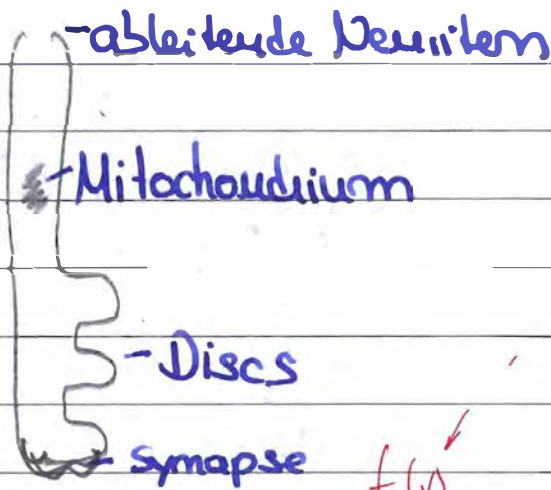 -ableitende Neuriten
-Mitochondrium
-Discs
-Synapse